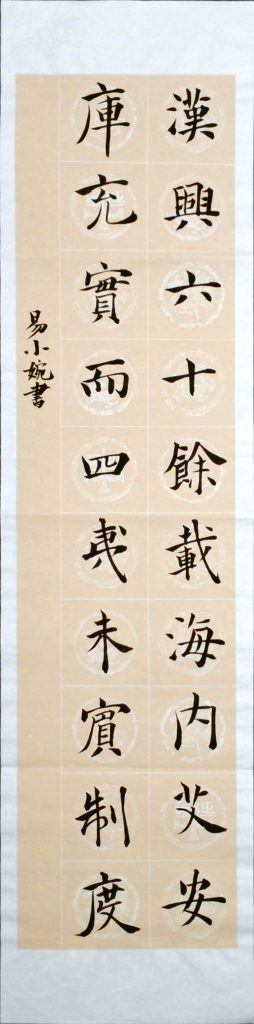 漢興六十餘載海内艾安
庫充實而四夷未賓制度
易小婉書